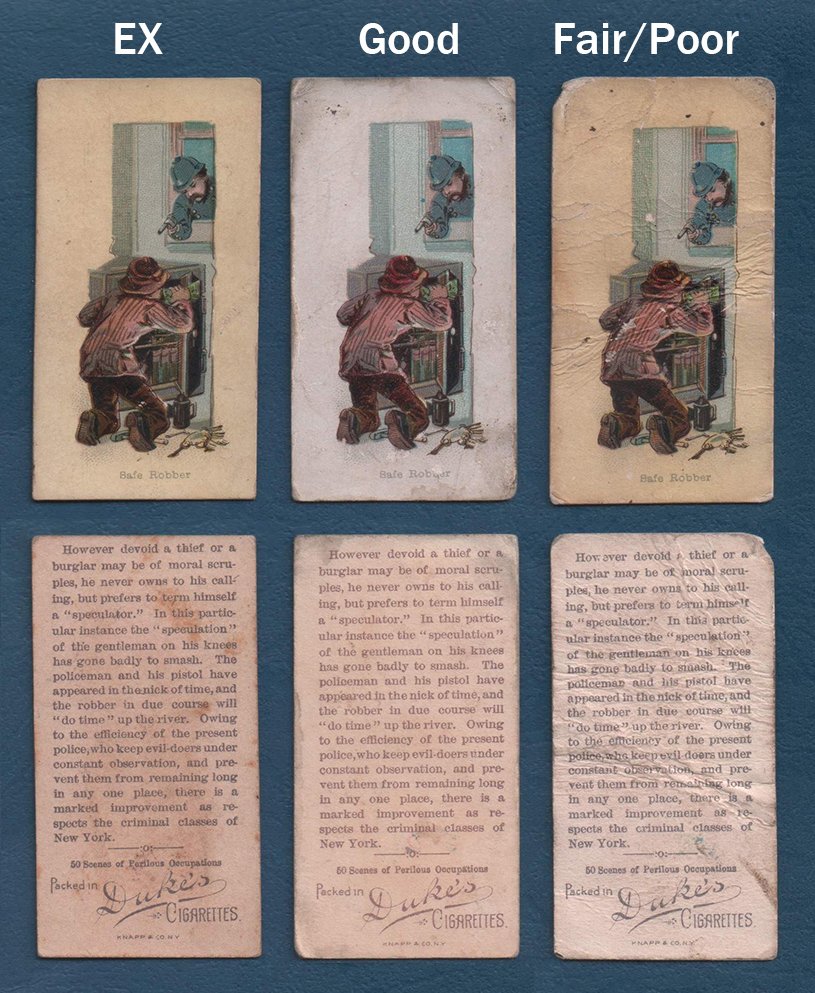 EX Good Fair/Poor
Safe Robber
Safe Robber
Safe Robber
However devoid a thief or a
burglar may be of moral scru-
ples, he never owns to his call-
ing, but prefers to term himself
a "speculator." In this partic-
ular instance the "speculation"
of the gentleman on his knees
has gone badly to smash. The
policeman and his pistol have
appeared in the nick of time, and
the robber in due course will
"do time" up the river. Owing
to the efficiency of the present
police, who keep evil-doers under
constant observation, and pre-
vent them from remaining long
in any one place, there is a
marked improvement as re-
spects the criminal classes of
New York.
:o:
50 Scenes of Perilous Occupations
Packed in
Duke's
CIGARETTES.
KNAPP & CO. N.Y.
However devoid a thief or a
burglar may be of moral scru-
ples, he never owns to his call-
ing, but prefers to term himself
a "speculator." In this partic-
ular instance the "speculation"
of the gentleman on his knees
has gone badly to smash. The
policeman and his pistol have
appeared in the nick of time, and
the robber in due course will
"do time" up the river. Owing
to the efficiency of the present
police, who keep evil-doers under
constant observation, and pre-
vent them from remaining long
in any one place, there is a
marked improvement as re-
spects the criminal classes of
New York.
:o:
50 Scenes of Perilous Occupations
Packed in
Duke's
CIGARETTES.
KNAPP & CO. N.Y.
However devoid a thief or a
burglar may be of moral scru-
ples, he never owns to his call-
ing, but prefers to term himself
a "speculator." In this partic-
ular instance the "speculation"
of the gentleman on his knees
has gone badly to smash. The
policeman and his pistol have
appeared in the nick of time, and
the robber in due course will
"do time" up the river. Owing
to the efficiency of the present
police, who keep evil doers under
constant observation, and pre-
vent them from remaining long
in any one place, there is a
marked improvement as re-
spects the criminal classes of
New York.
:o:
50 Scenes of Perilous Occupations
Packed in
Duke's
CIGARETTES.
KNAPP & CO. N.Y.